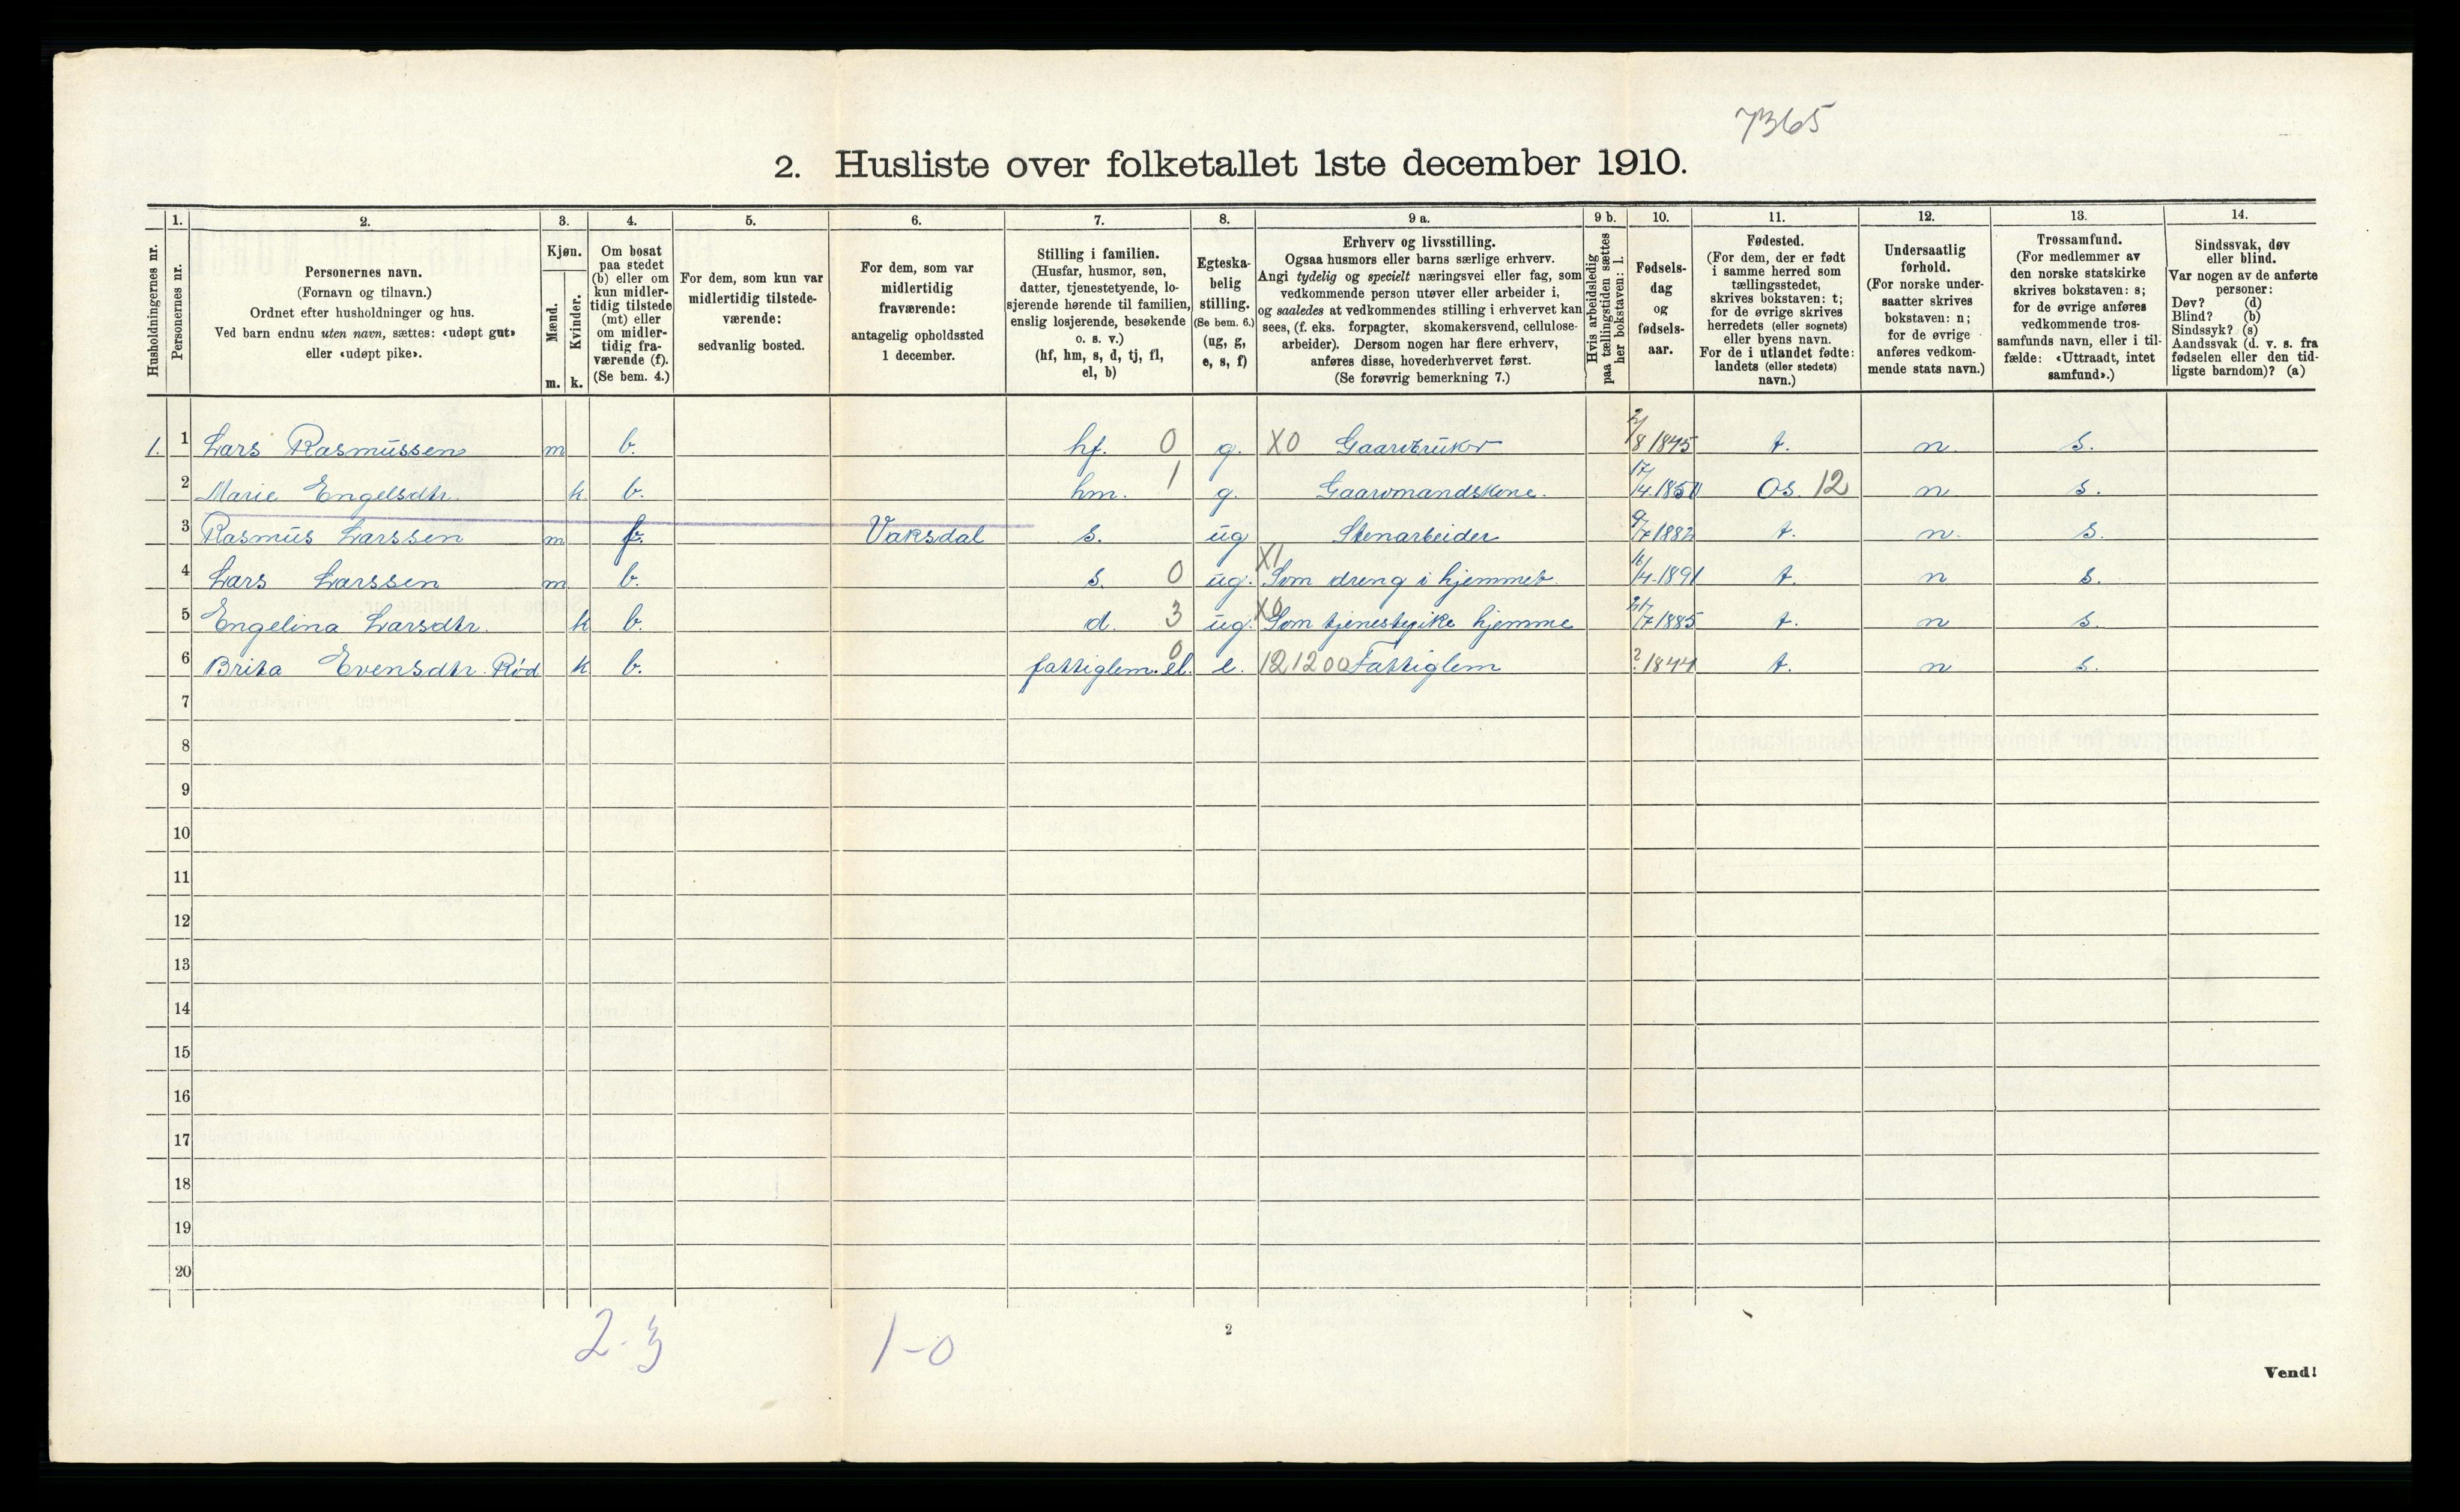 7365
2. Husliste over folketallet 1ste december 1910.
Husholdningernes nr.
1.
Personernes nr.
2.
Personernes navn.
(Fornavn og tilnavn.)
Ordnet efter husholdninger og hus.
Ved barn endnu uten navn, sættes: «udøpt gut»
eller «udøpt pike».
3.
Kjøn.
Mænd.
Kvinder.
m. k.
4.
Om bosat
paa stedet
(b) eller om
kun midler-
tidig tilstede
(mt) eller
om midler-
tidig fra-
værende (f).
(Se bem. 4.)
5.
For dem, som kun var
midlertidig tilstede-
værende:
sedvanlig bosted.
6.
For dem, som var
midlertidig
fraværende:
antagelig opholdssted
1 december.
7.
Stilling i familien.
(Husfar, husmor, søn,
datter, tjenestetyende, lo-
sjerende hørende til familien,
enslig losjerende, besøkende
o. s. v.)
(hf, hm, s, d, tj, fl,
el, b)
8.
Egteska-
belig
stilling.
(Se bem. 6.)
(ug, g,
e, s, f)
9 a.
Erhverv og livsstilling.
Ogsaa husmors eller barns særlige erhverv.
Angi tydelig og specielt næringsvei eller fag, som
vedkommende person utøver eller arbeider i,
og saaledes at vedkommendes stilling i erhvervet kan
sees, (f. eks. forpagter, skomakersvend, cellulose-
arbeider). Dersom nogen har flere erhverv,
anføres disse, hovederhvervet først.
(Se forøvrig bemerkning 7.)
9 b.
Hvis arbeidsledig
paa tællingstiden sættes
her bokstaven: l.
10.
Fødsels-
dag
og
fødsels-
aar.
11.
Fødested.
(For dem, der er født
i samme herred som
tællingsstedet,
skrives bokstaven: t;
for de øvrige skrives
herredets (eller sognets)
eller byens navn.
For de i utlandet fødte:
landets (eller stedets)
navn.)
12.
Undersaatlig
forhold.
(For norske under-
saatter skrives
bokstaven: n;
for de øvrige
anføres vedkom-
mende stats navn.)
13.
Trossamfund.
(For medlemmer av
den norske statskirke
skrives bokstaven: s;
for de øvrige anføres
vedkommende tros-
samfunds navn, eller i til-
fælde: «Uttraadt, intet
samfund».)
14.
Sindssvak, døv
eller blind.
Var nogen av de anførte
personer:
Døv? (d)
Blind? (b)
Sindssyk? (s)
Aandssvak (d. v. s. fra
fødselen eller den tid-
ligste barndom)? (a)
1. 1 Lars Rasmussen m b. hf. 0 g. X0 Gaardbruker 2/8 1845 t. n. s.
2 Marie Engelsdtr. k b. hm. 1 g. Gaardmandskone. 17/4 1851 Os. 12 n s.
3 Rasmus Larssen m f. Vaksdal s. ug Stenarbeider 9/7 1882 t. n. s.
4 Lars Larssen m b. s. 0 ug. X1 Som dreng i hjemmet 16/4 1891 t. n s.
5 Engelina Larsdtr. k b. d. 3 ug. X0 Som tjenestepike hjemme 21/7 1885 t. n s.
6 Brita Evensdtr. Rød k b. fattiglem. el. 0 e. 121200 Fattiglem ? 1844 t. n s.
7
8
9
10
11
12
13
14
15
16
17
18
19
20
2-3 1-0
2
Vend!